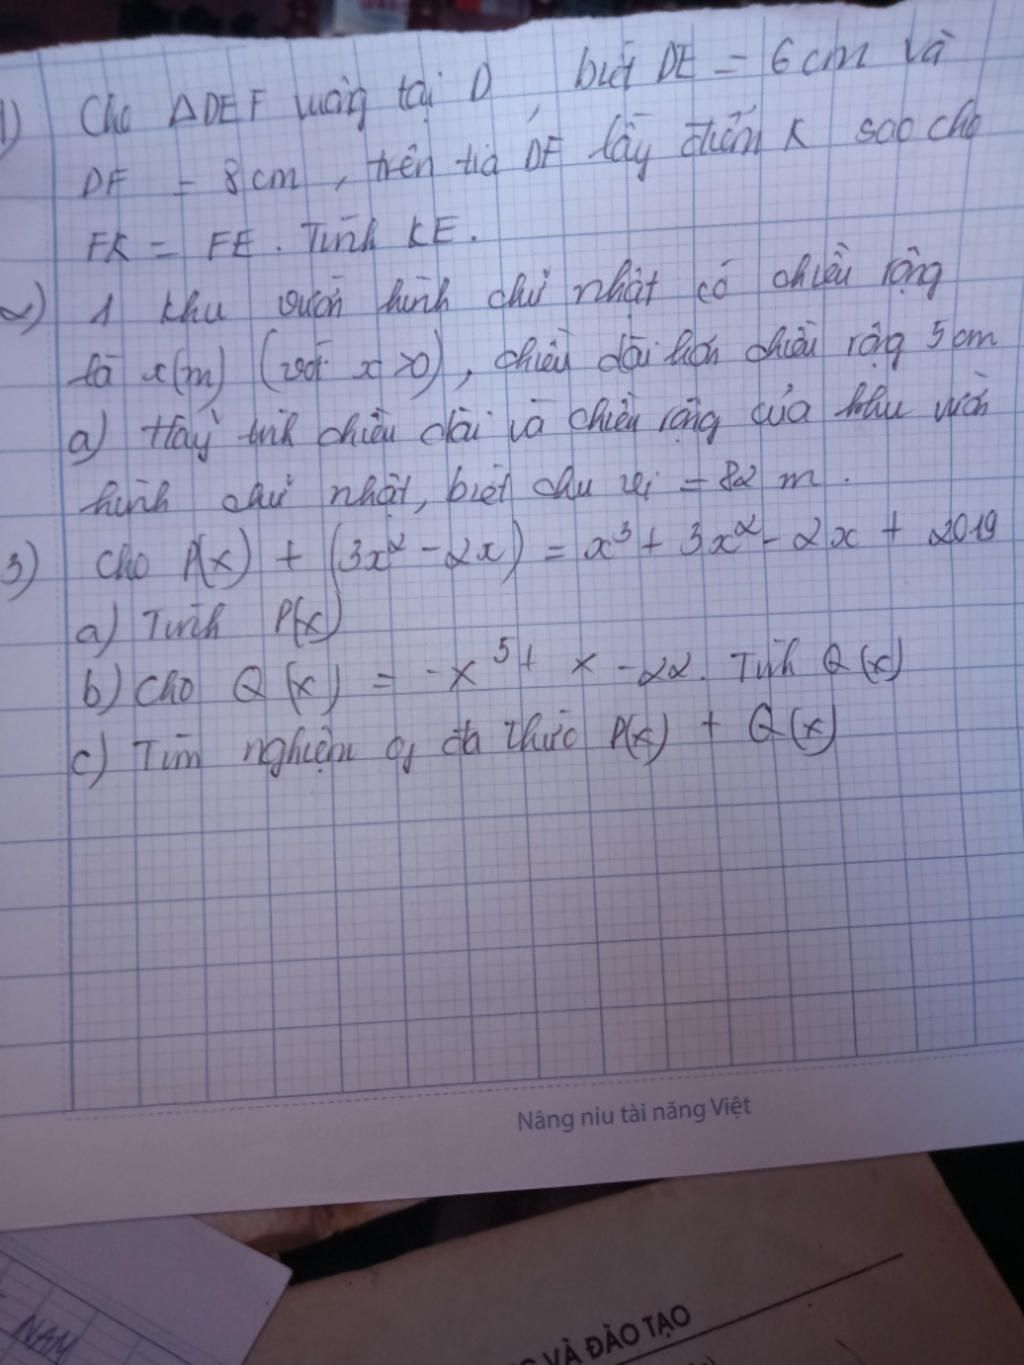 1) Cho ΔDEF vuông tại D, biết DE = 6cm và
DF = 8cm, trên tia DF lấy điểm K sao cho
FK = FE. Tính KE.
2) 1 khu vườn hình chữ nhật có chiều rộng
là x(m) (với x>0), chiều dài hơn chiều rộng 5cm
a) Hãy tính chiều dài và chiều rộng của khu vườn
hình chữ nhật, biết chu vi = 82 m.
3) Cho P(x) + (3x² - 2x) = x³ + 3x² - 2x + 2019
a) Tính P(x)
b) Cho Q(x) = -x⁵ + x - 22. Tính Q(x)
c) Tìm nghiệm của đa thức P(x) + Q(x)
Nâng niu tài năng Việt
NAM
VÀ ĐÀO TẠO